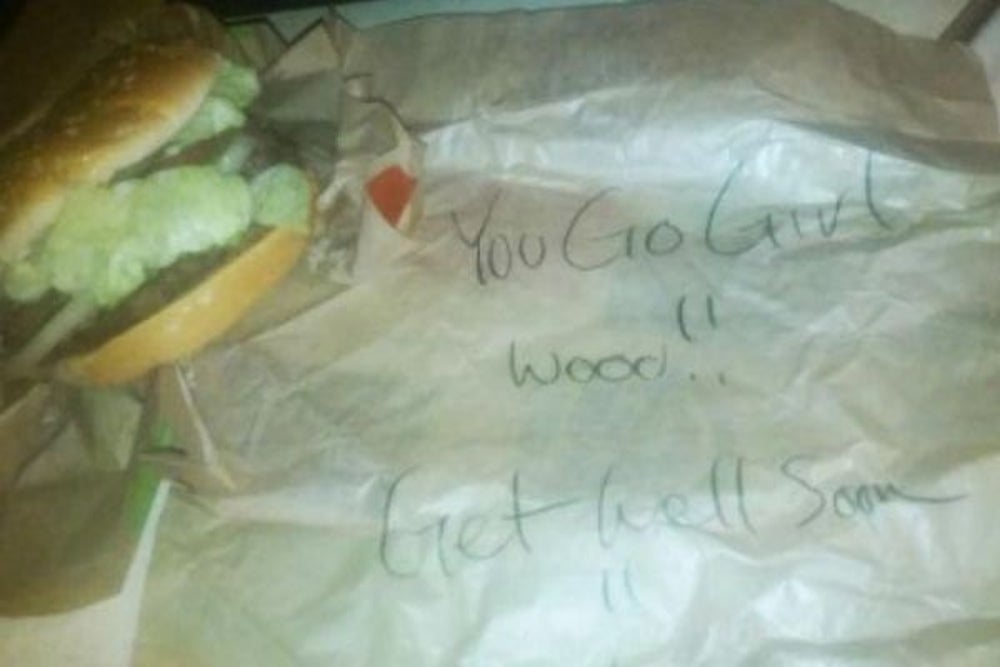 You Go Girl
Wooo!!
Get Well Soon
!!